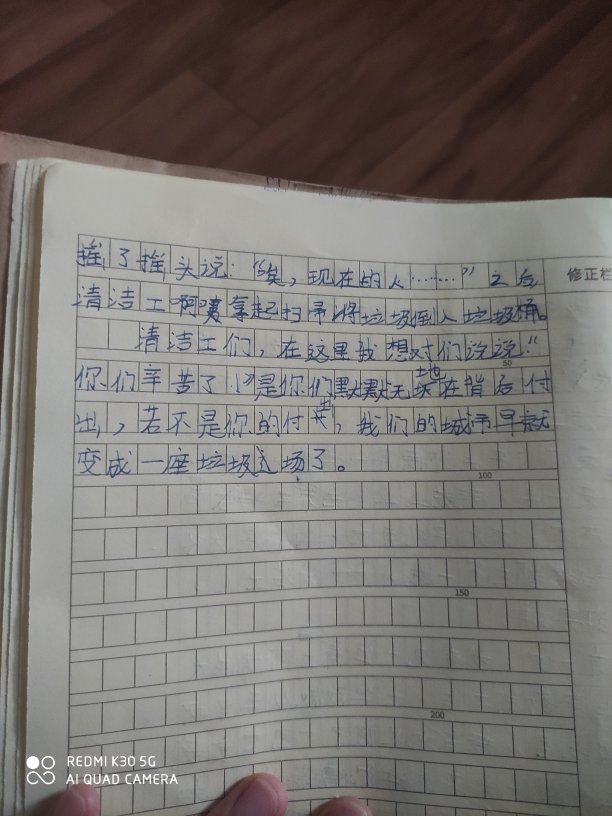 摇了摇头说："唉，现在的人……"之后
修正栏
清洁工阿姨拿起扫帚将垃圾倒入垃圾桶。
清洁工们，在这里我想对们说说："
50
你们辛苦了！"是你们默默无地在背后付
出，若不是你的付出，我们的城市早就
变成一座垃圾场了。
100
150
200
REDMI K30 5G
AI QUAD CAMERA